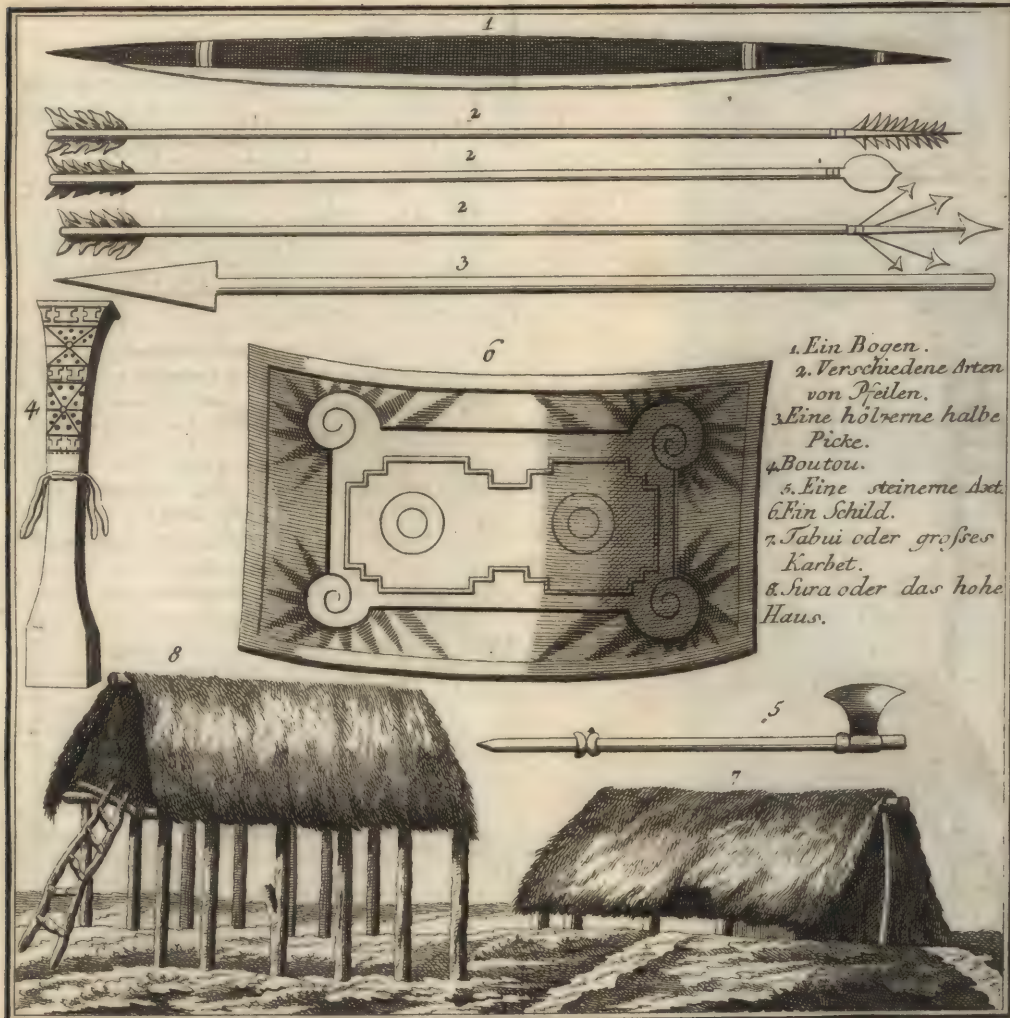 1
2
2
2
3
4
6
1. Ein Bogen.
2. Verschiedene Arten
von Pfeilen.
3. Eine hölzerne halbe
Picke.
4. Boutou.
5. Eine steinerne Axt.
6. Ein Schild.
7. Tabui oder großes
Karbet.
8. Sura oder das hohe
Haus.
8
5
7